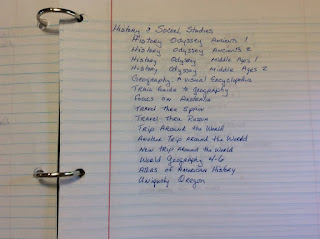 History & Social Studies
History Odyssey Ancients 1
History Odyssey Ancients 2
History Odyssey Middle Ages 1
History Odyssey Middle Ages 2
Geography: A visual Encyclopedia
Train Guide to geography
Focus on
Travel thru Spain
Travel thru Russia
Trip Around the World
Another Trip Around the World
New Trip Around the World
World Geography 4-6
Atlas of American History
Uniquely Oregon